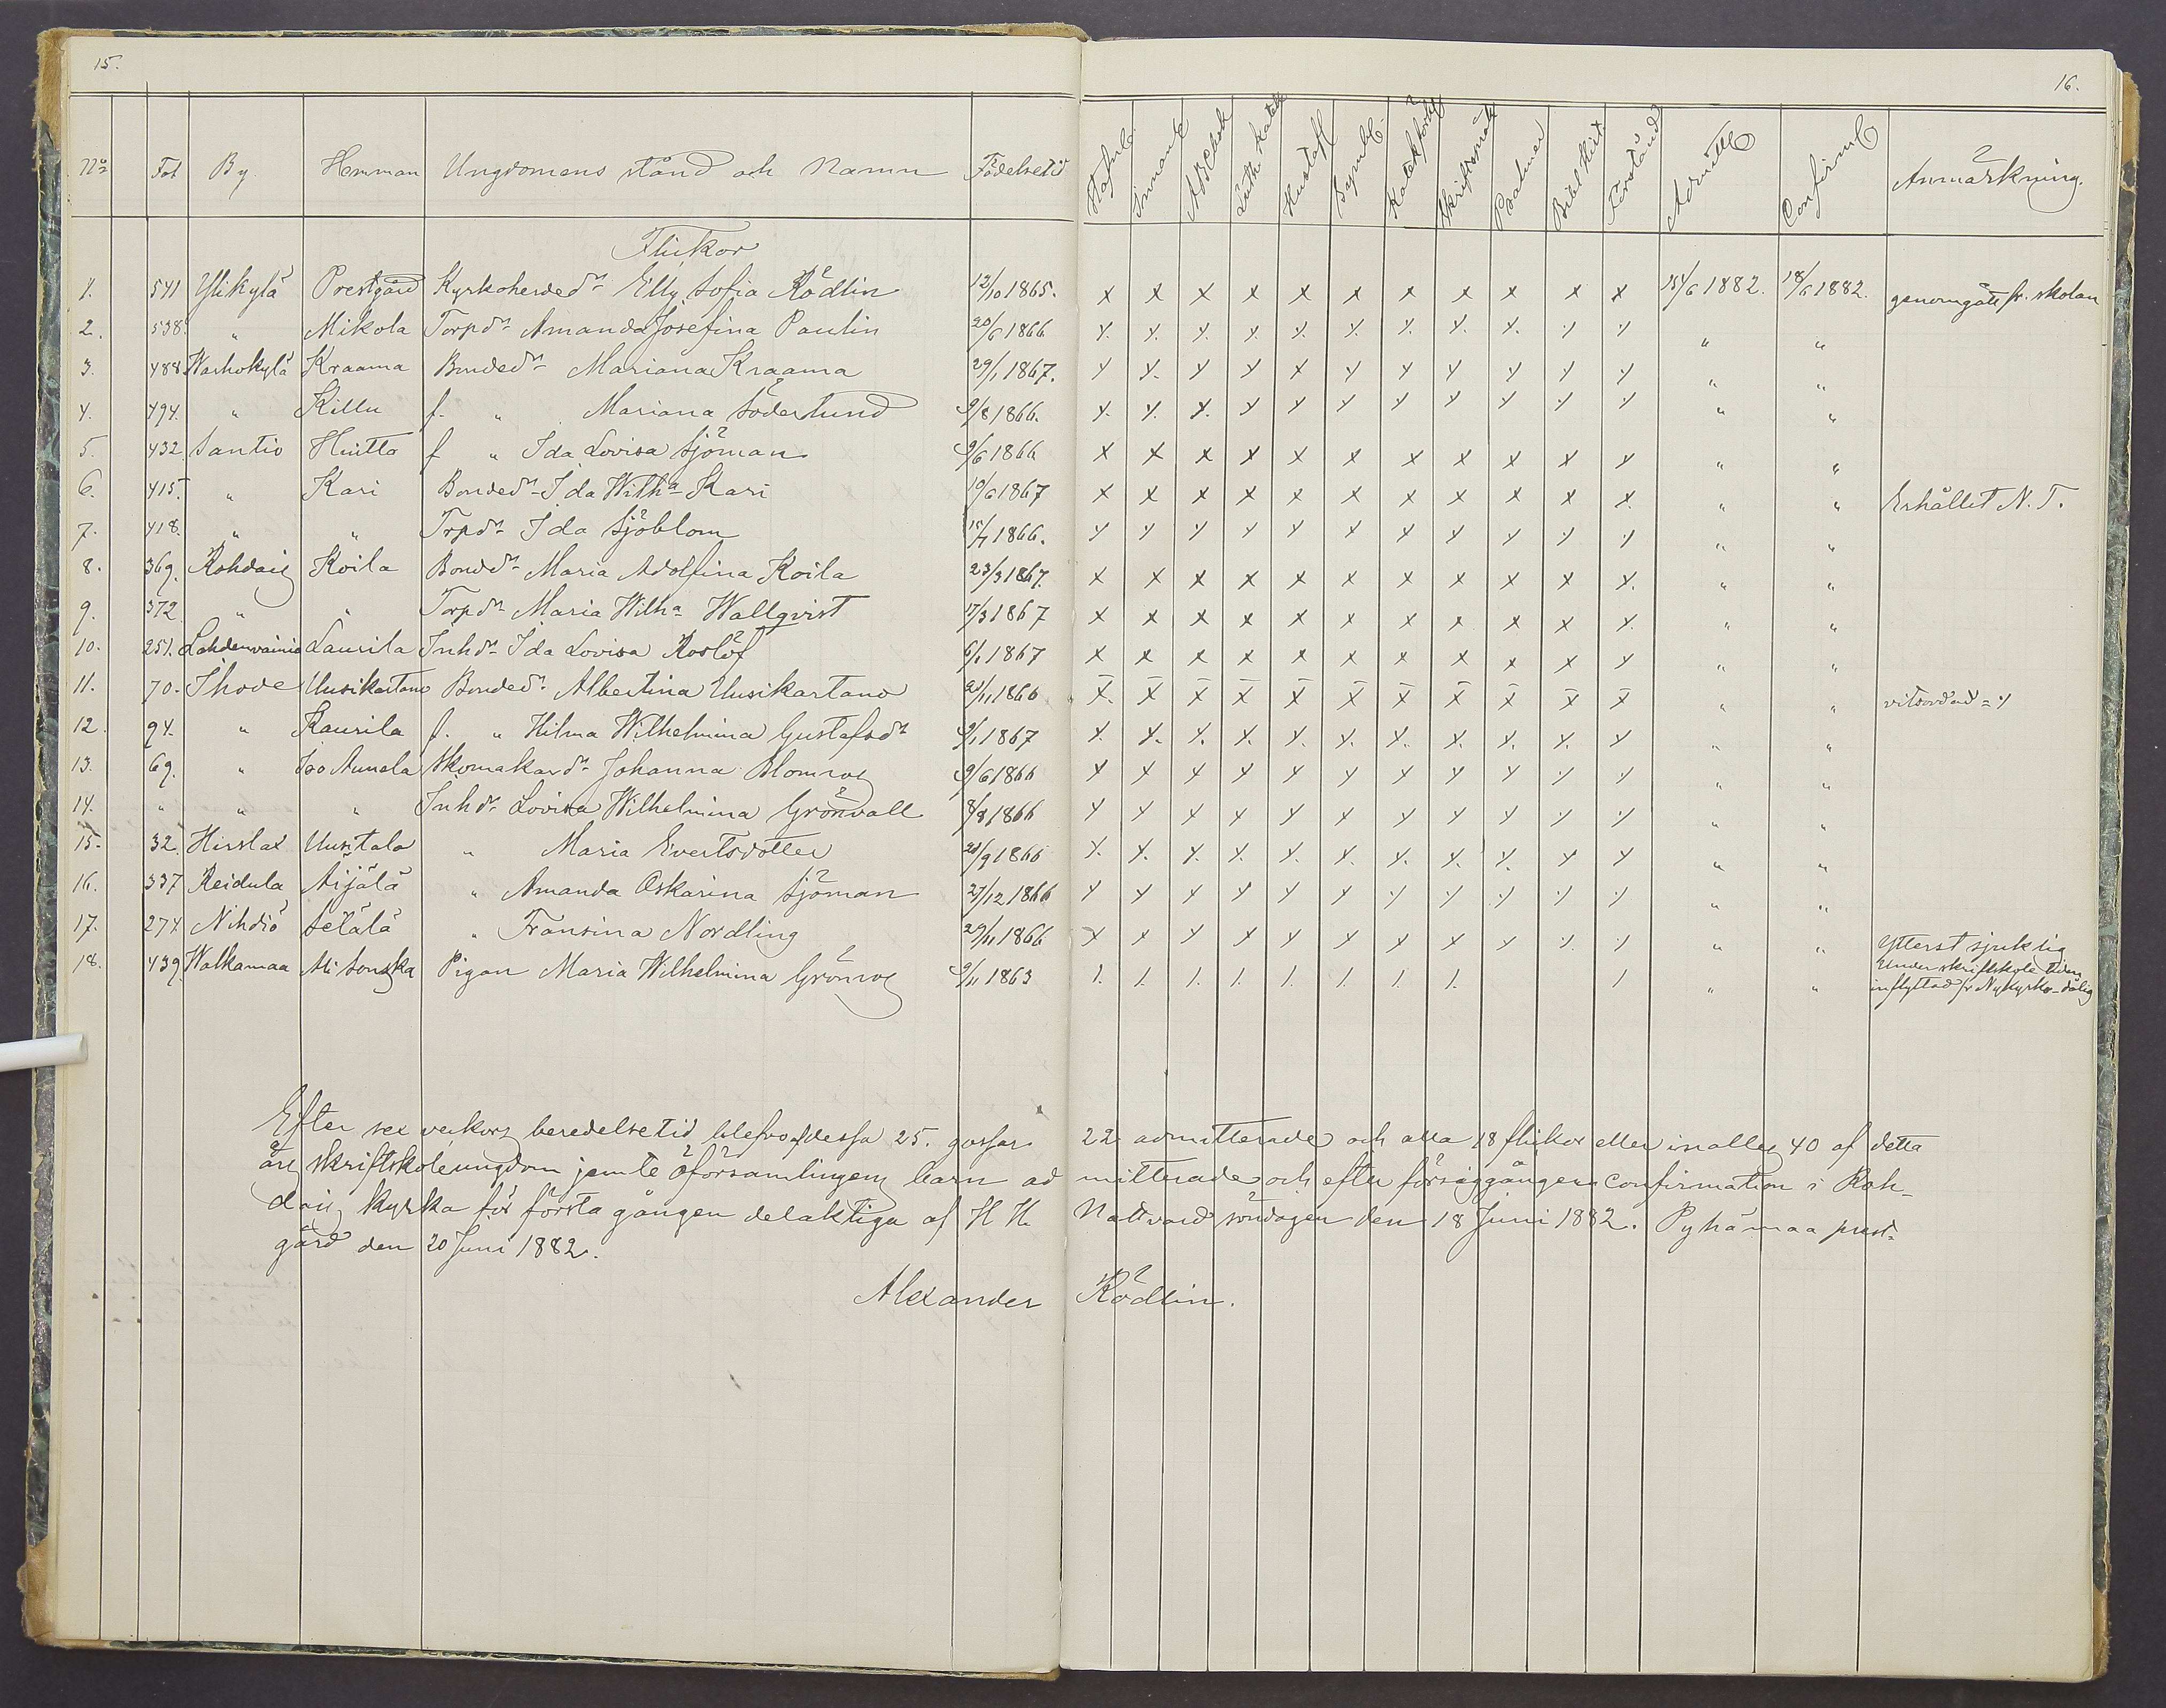 15.
16.
No Fol By Hemman Ungdomens stånd och Namn Födelsetid Stafnb. Innanl. ABCbok Luth. Katek Hustafl Symbl. Katek förkl Skriftsmål Psalmer Bibl Hist Förstånd Admitt Confirm Anmärkning.
Flickor
1. 541 Ylikylä Prestgård Kyrkoherded:r Elly Sofia Rödlin 12/10 1865. x x x x x x x x x x x 15/6 1882. 18/6 1882. genomgått fr. skolan
2. 538. " Mikola Torpd:r Amanda Josefina Paulin 20/6 1866. " "
3. 488 Warhokylä Kraama Bonded:r Mariana Kraama 29/1 1867. " "
4. 494. " Killu f. " Mariana Söderlund 9/8 1866. " "
5. 432 Santio Heitto f " Ida Lovisa Sjöman 9/6 1866 x x x x x x x x x x " "
6. 415. " Kari Bonded:r Ida Wilh:a Kari 19/6 1867 x x x x x x x x x x x. " " Erhållet N. T.
7. 418. " " Trpd:r Ida Sjöblom 1866. " "
8. 369. Rohdais Koila Bondd:r Maria Adolfina Koila 23/3 1867. x x x x x x x x x x x. " "
9. 372 " " Torpd:r Maria Wilh:a Wallqvist 17/3 1867 x x x x x x x x x x x. " "
10. 251. Lahdenvainio Laurila Inhd:r Ida Lovisa Roslöf 1867 x x x x x x x x x x " "
11. 70. Ihode Uusikartano Bonded:r Albertina Uusikartano 1866 x x x x x x x x x x x " " vitsordad =
12. 94. " Kaurila f. " Hilma Wilhelmina Gustafsd:r 9/1 1867 " "
13. 69. " Iso Aunela Skomakard:r Johanna Blomros 9/6 1866 " "
14. " " " Inhd:r Lovisa Wilhelmina Grönvall 8/8 1866 " "
15. 32. Hirslax Uusitalo " Maria Evertsdotter 1866 " "
16. 337 Reidula Äijälä " Amanda Oskarina Sjöman 27/12 1866 " "
17. 274 Nihdiö Setälä " Fransina Nordling 29/11 1866 " " Ytterst sjuklig
18. 439. Walkamaa Maria Wilhelmina Grönros 9/11 1863 " " Under skriftskole tiden
Pigan
inflyttad fr Nykyrko - dålig
Efter sex veckors beredelsetid blefvo af dessa 25. gossar 22 admitterade och alla 18 flickor eller inalles 40 af detta
års skriftskoleungdom jemte öförsamlingens barn admitterade och efter försiggången Confirmation i Roh-
dais kyrka för första gången delaktiga af H. H. Nattvard söndagen den 18 Juni 1882. Pyhämaa prest-
gård den 20 Juni 1882.
Alexander Rödlin.